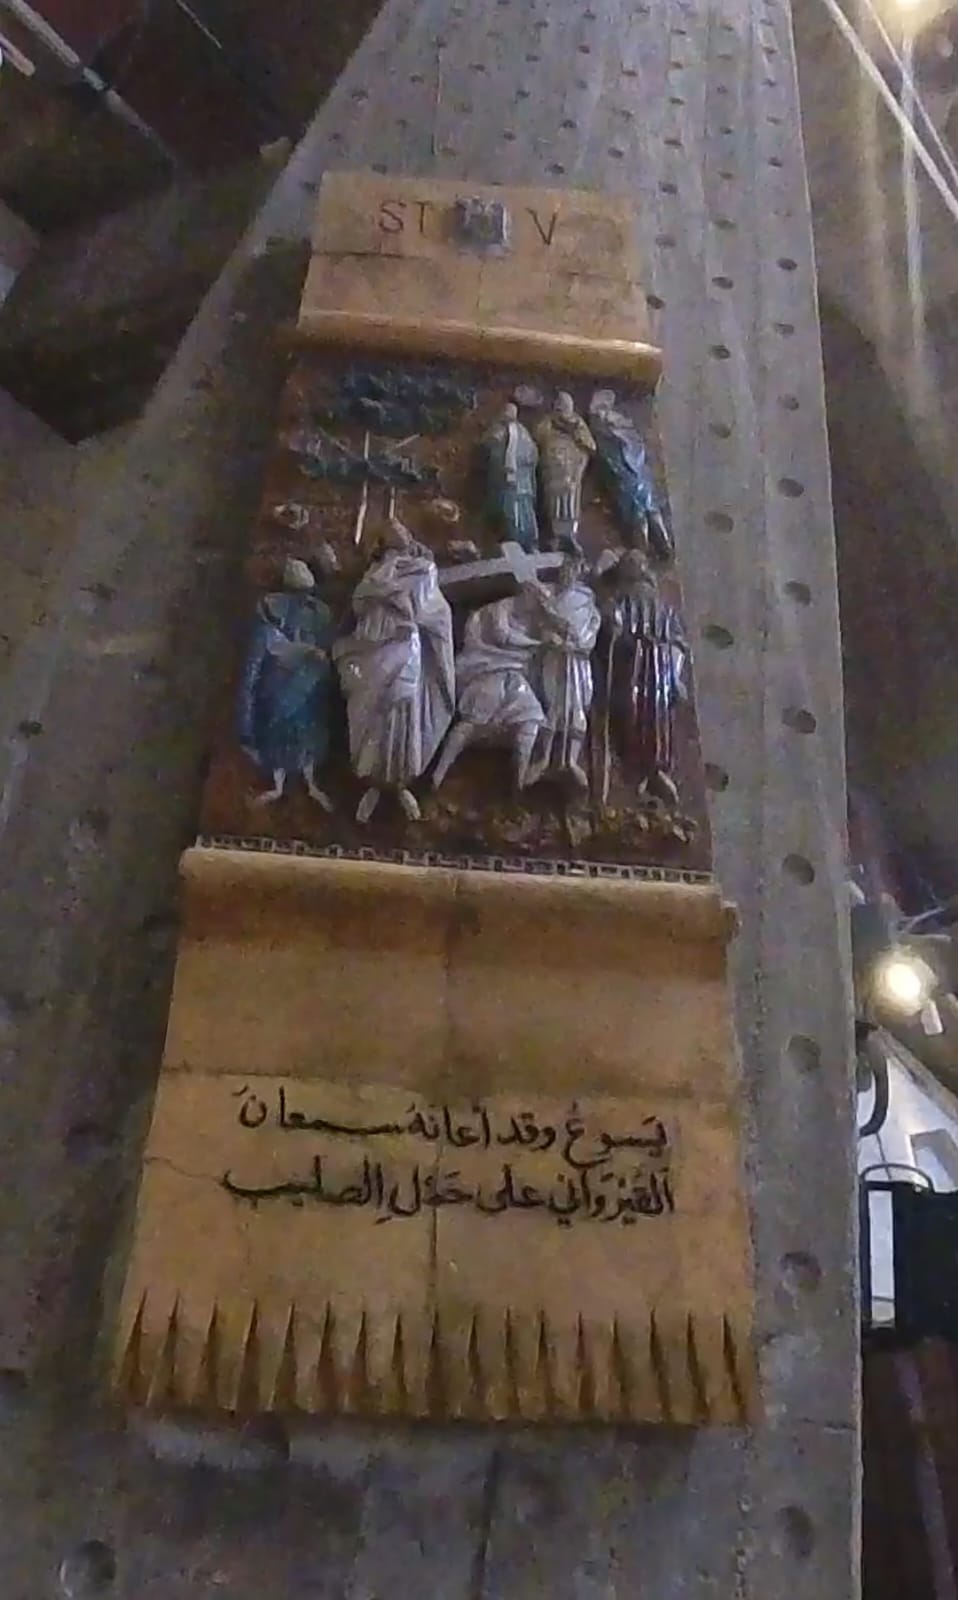 ST V
يَسوعُ وقد أعانهُ سمعانَ
القيْرَواني على حَمْلِ الصليب